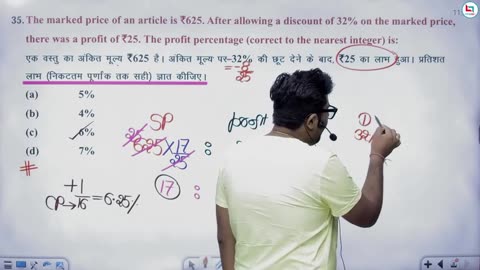 35. The marked price of an article is ₹625. After allowing a discount of 32% on the marked price,
there was a profit of ₹25. The profit percentage (correct to the nearest integer) is:
एक वस्तु का अंकित मूल्य ₹625 है। अंकित मूल्य पर 32% की छूट देने के बाद, ₹25 का लाभ हुआ। प्रतिशत
लाभ (निकटतम पूर्णांक तक सही) ज्ञात कीजिए।
= -8/25
(a) 5%
(b) 4%
(c) 6%
(d) 7%
SP
625 × 17/25 :
17 :
profit
D
+1
CP→16 = 6.25%
11